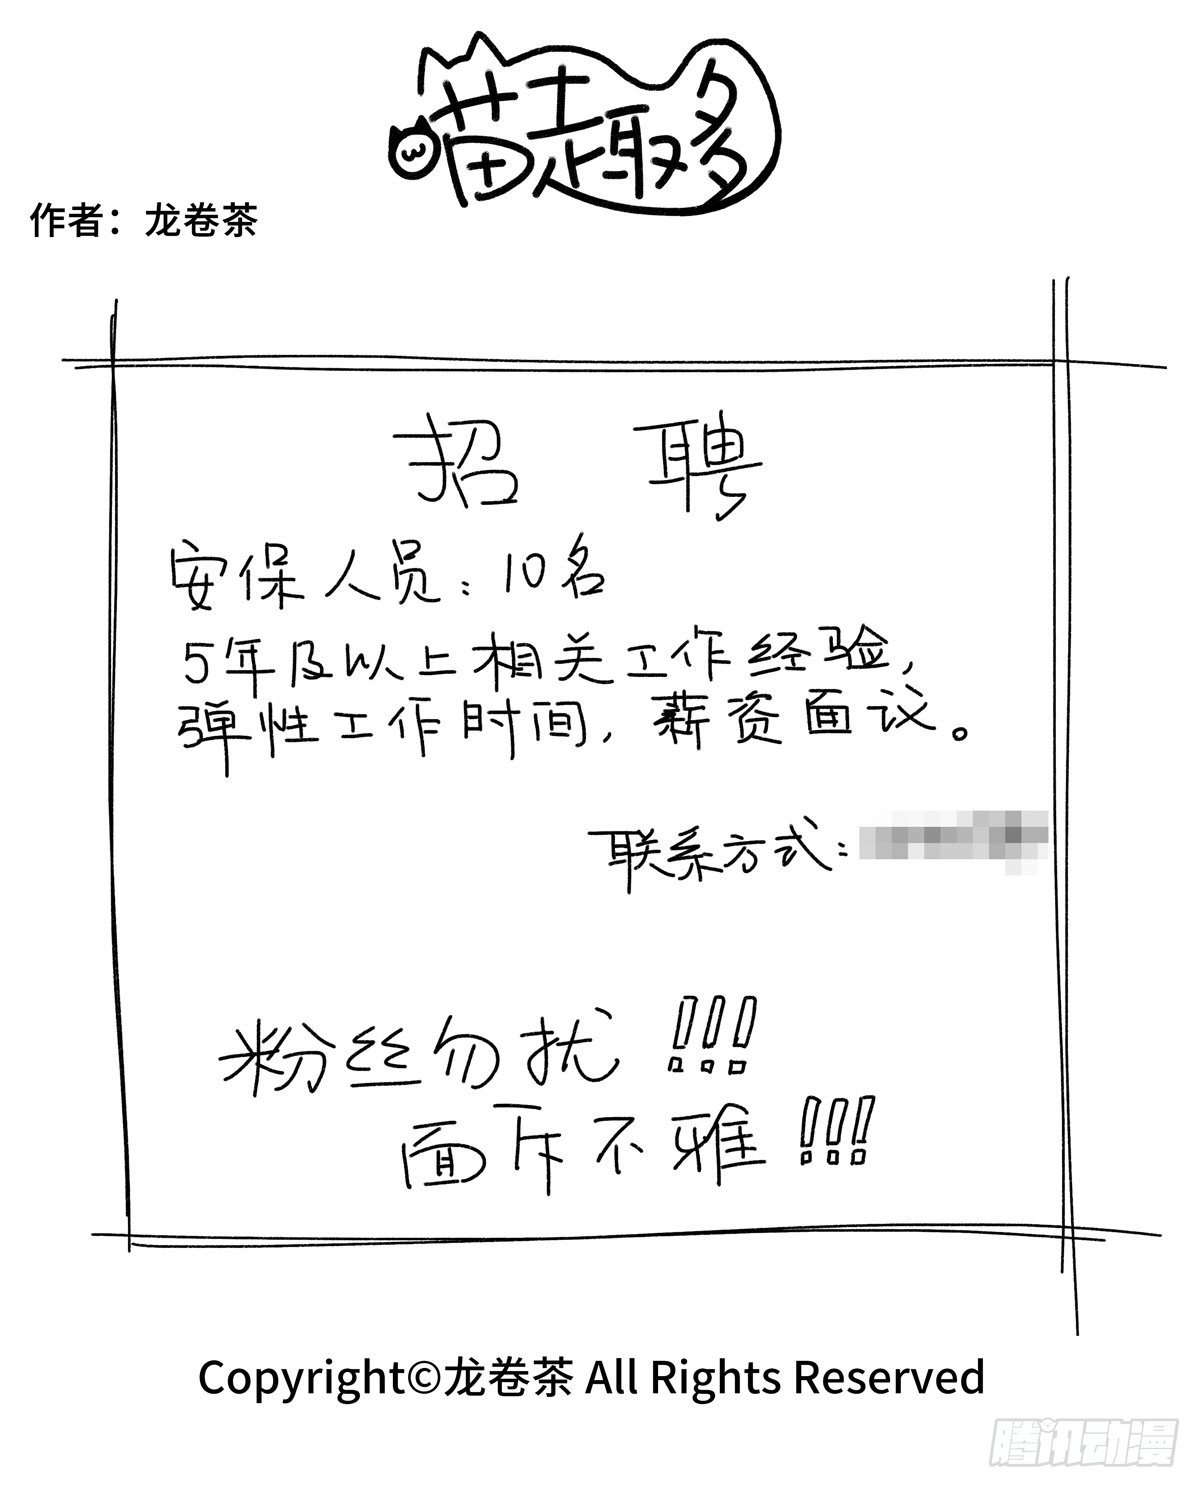 喵趣多
作者：龙卷茶
招 聘
安保人员：10名
5年及以上相关工作经验，
弹性工作时间，薪资面议。
联系方式：
粉丝勿扰!!!
面斥不雅!!!
Copyright©龙卷茶 All Rights Reserved
腾讯动漫